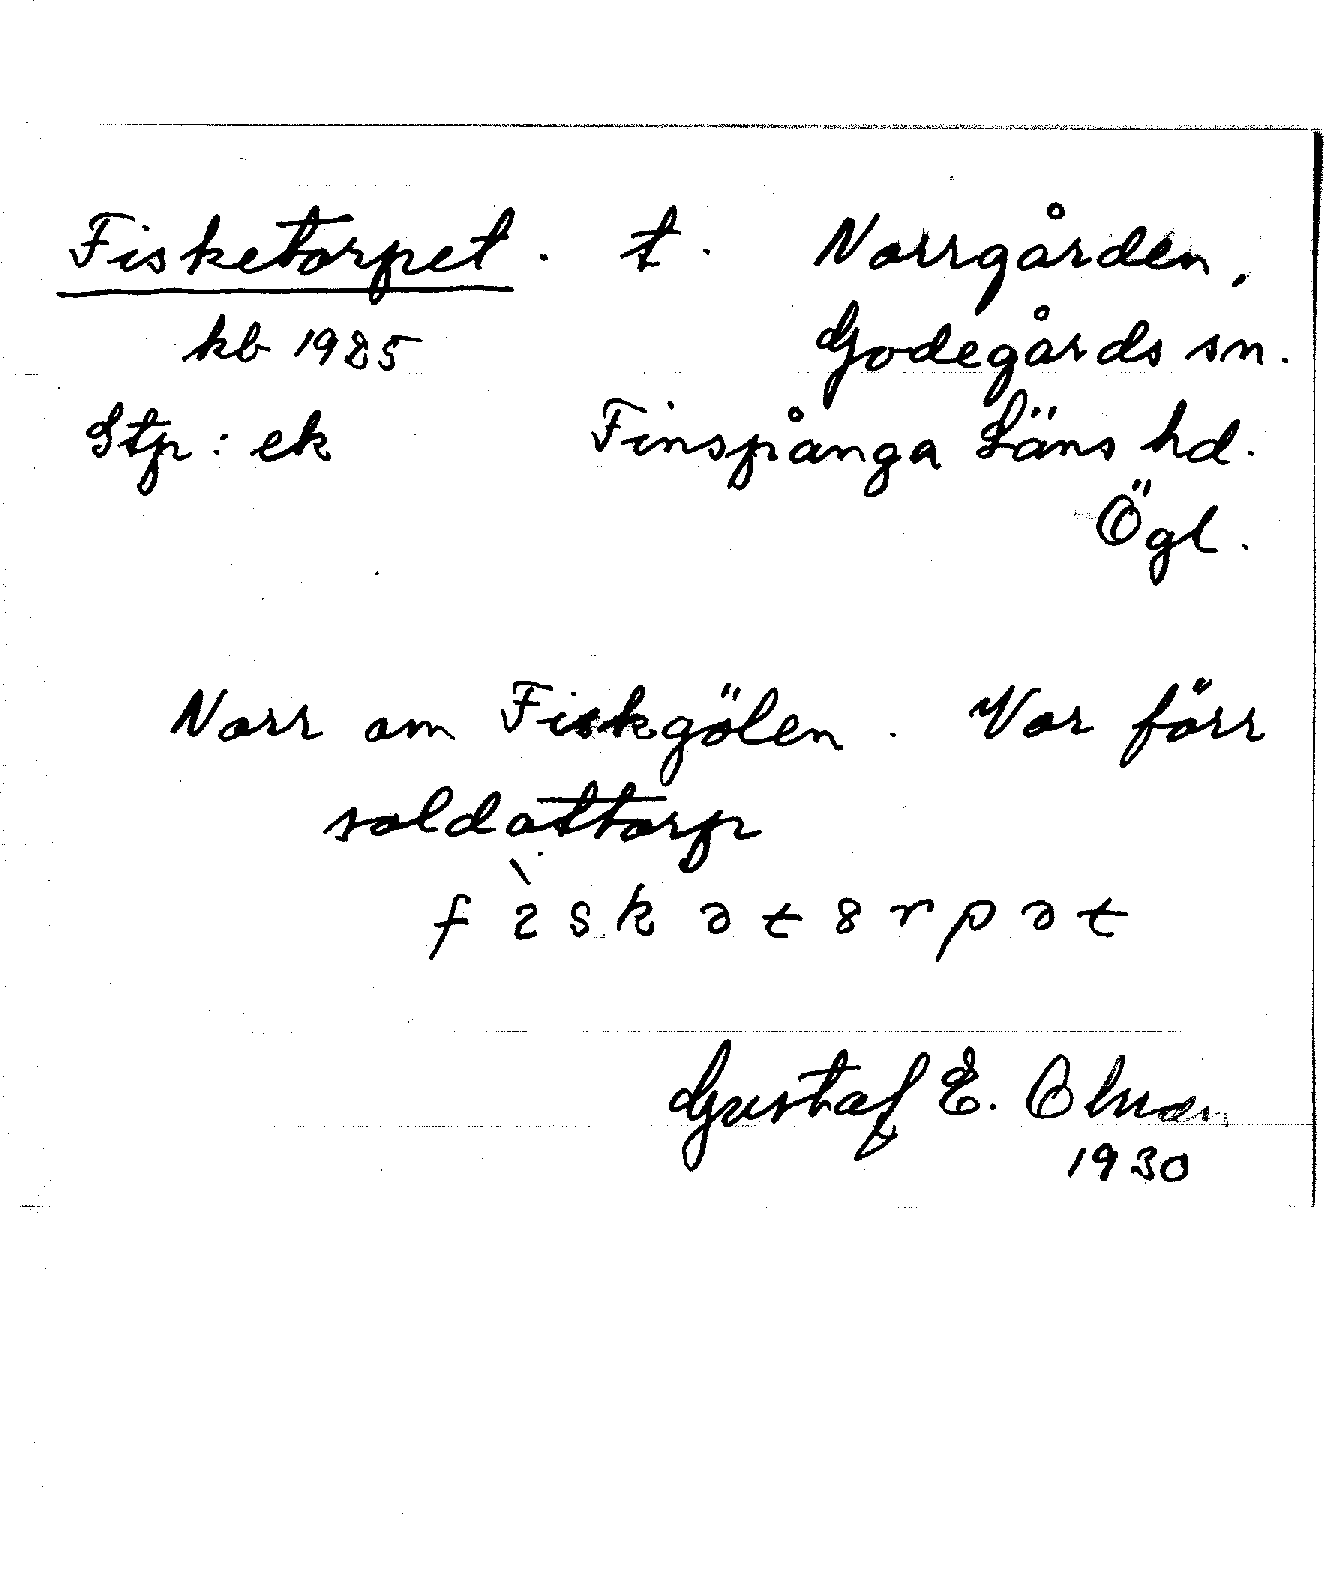 Fisketorpet. t. Norrgården,
kb 1925 Godegårds sn.
Stp: ek Finspånga Läns hd.
Ögl.
Norr om Fiskgölen. Var förr
soldattorp
fìskətɞrpət
Gustaf E. Olman
1930